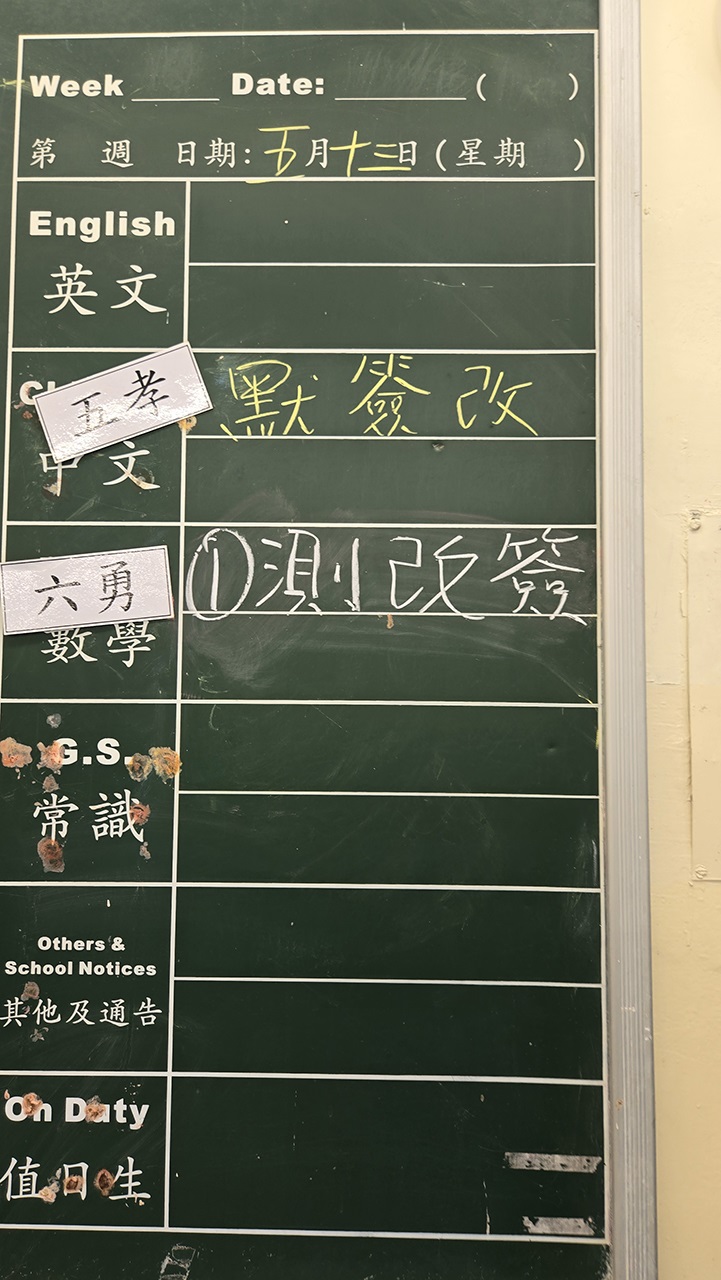 Week Date: ( )
第 週 日期: 五月十三日 (星期 )
English
英文
五孝
默簽改
中文
六勇
①測改簽
數學
G.S.
常識
Others &
School Notices
其他及通告
On Duty
值日生